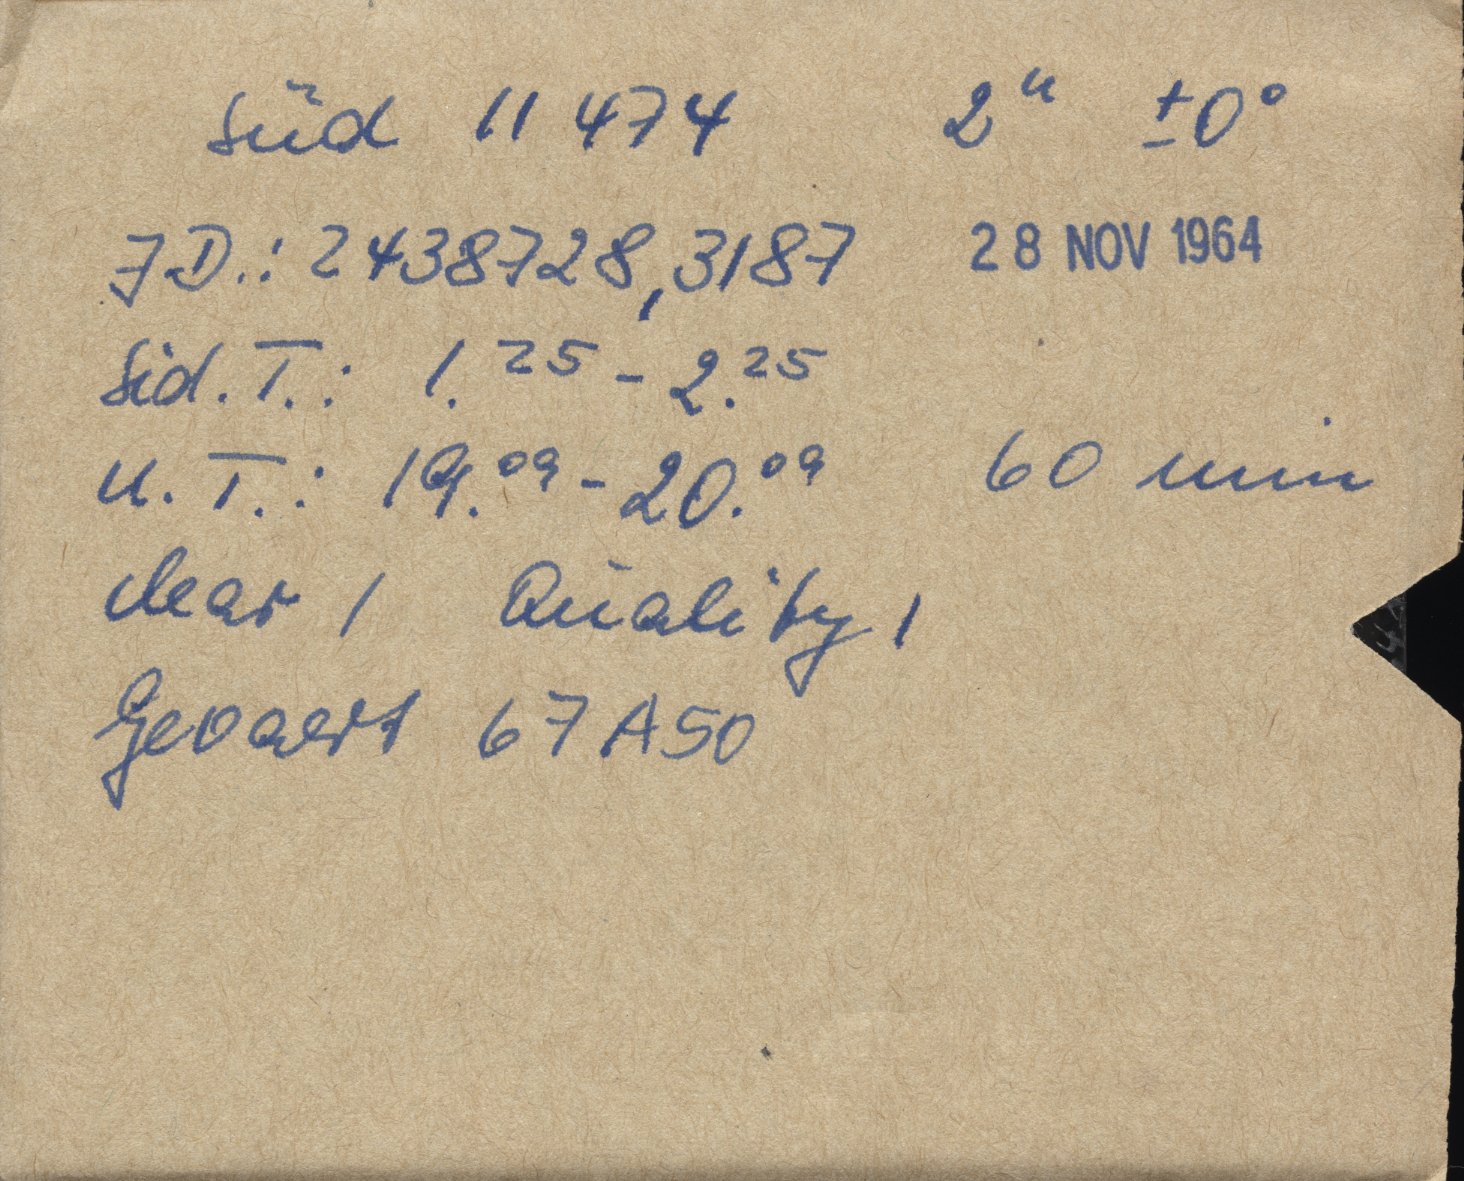 Süd 11 474 2ʰ ±0°
J.D.: 2438728,3187 28 NOV 1964
Sid. T.: 1.²⁵ - 2.²⁵
U. T.: 19.⁰⁹ - 20.⁰⁹ 60 min
clear / Quality 1
Gevaert 67 A 50